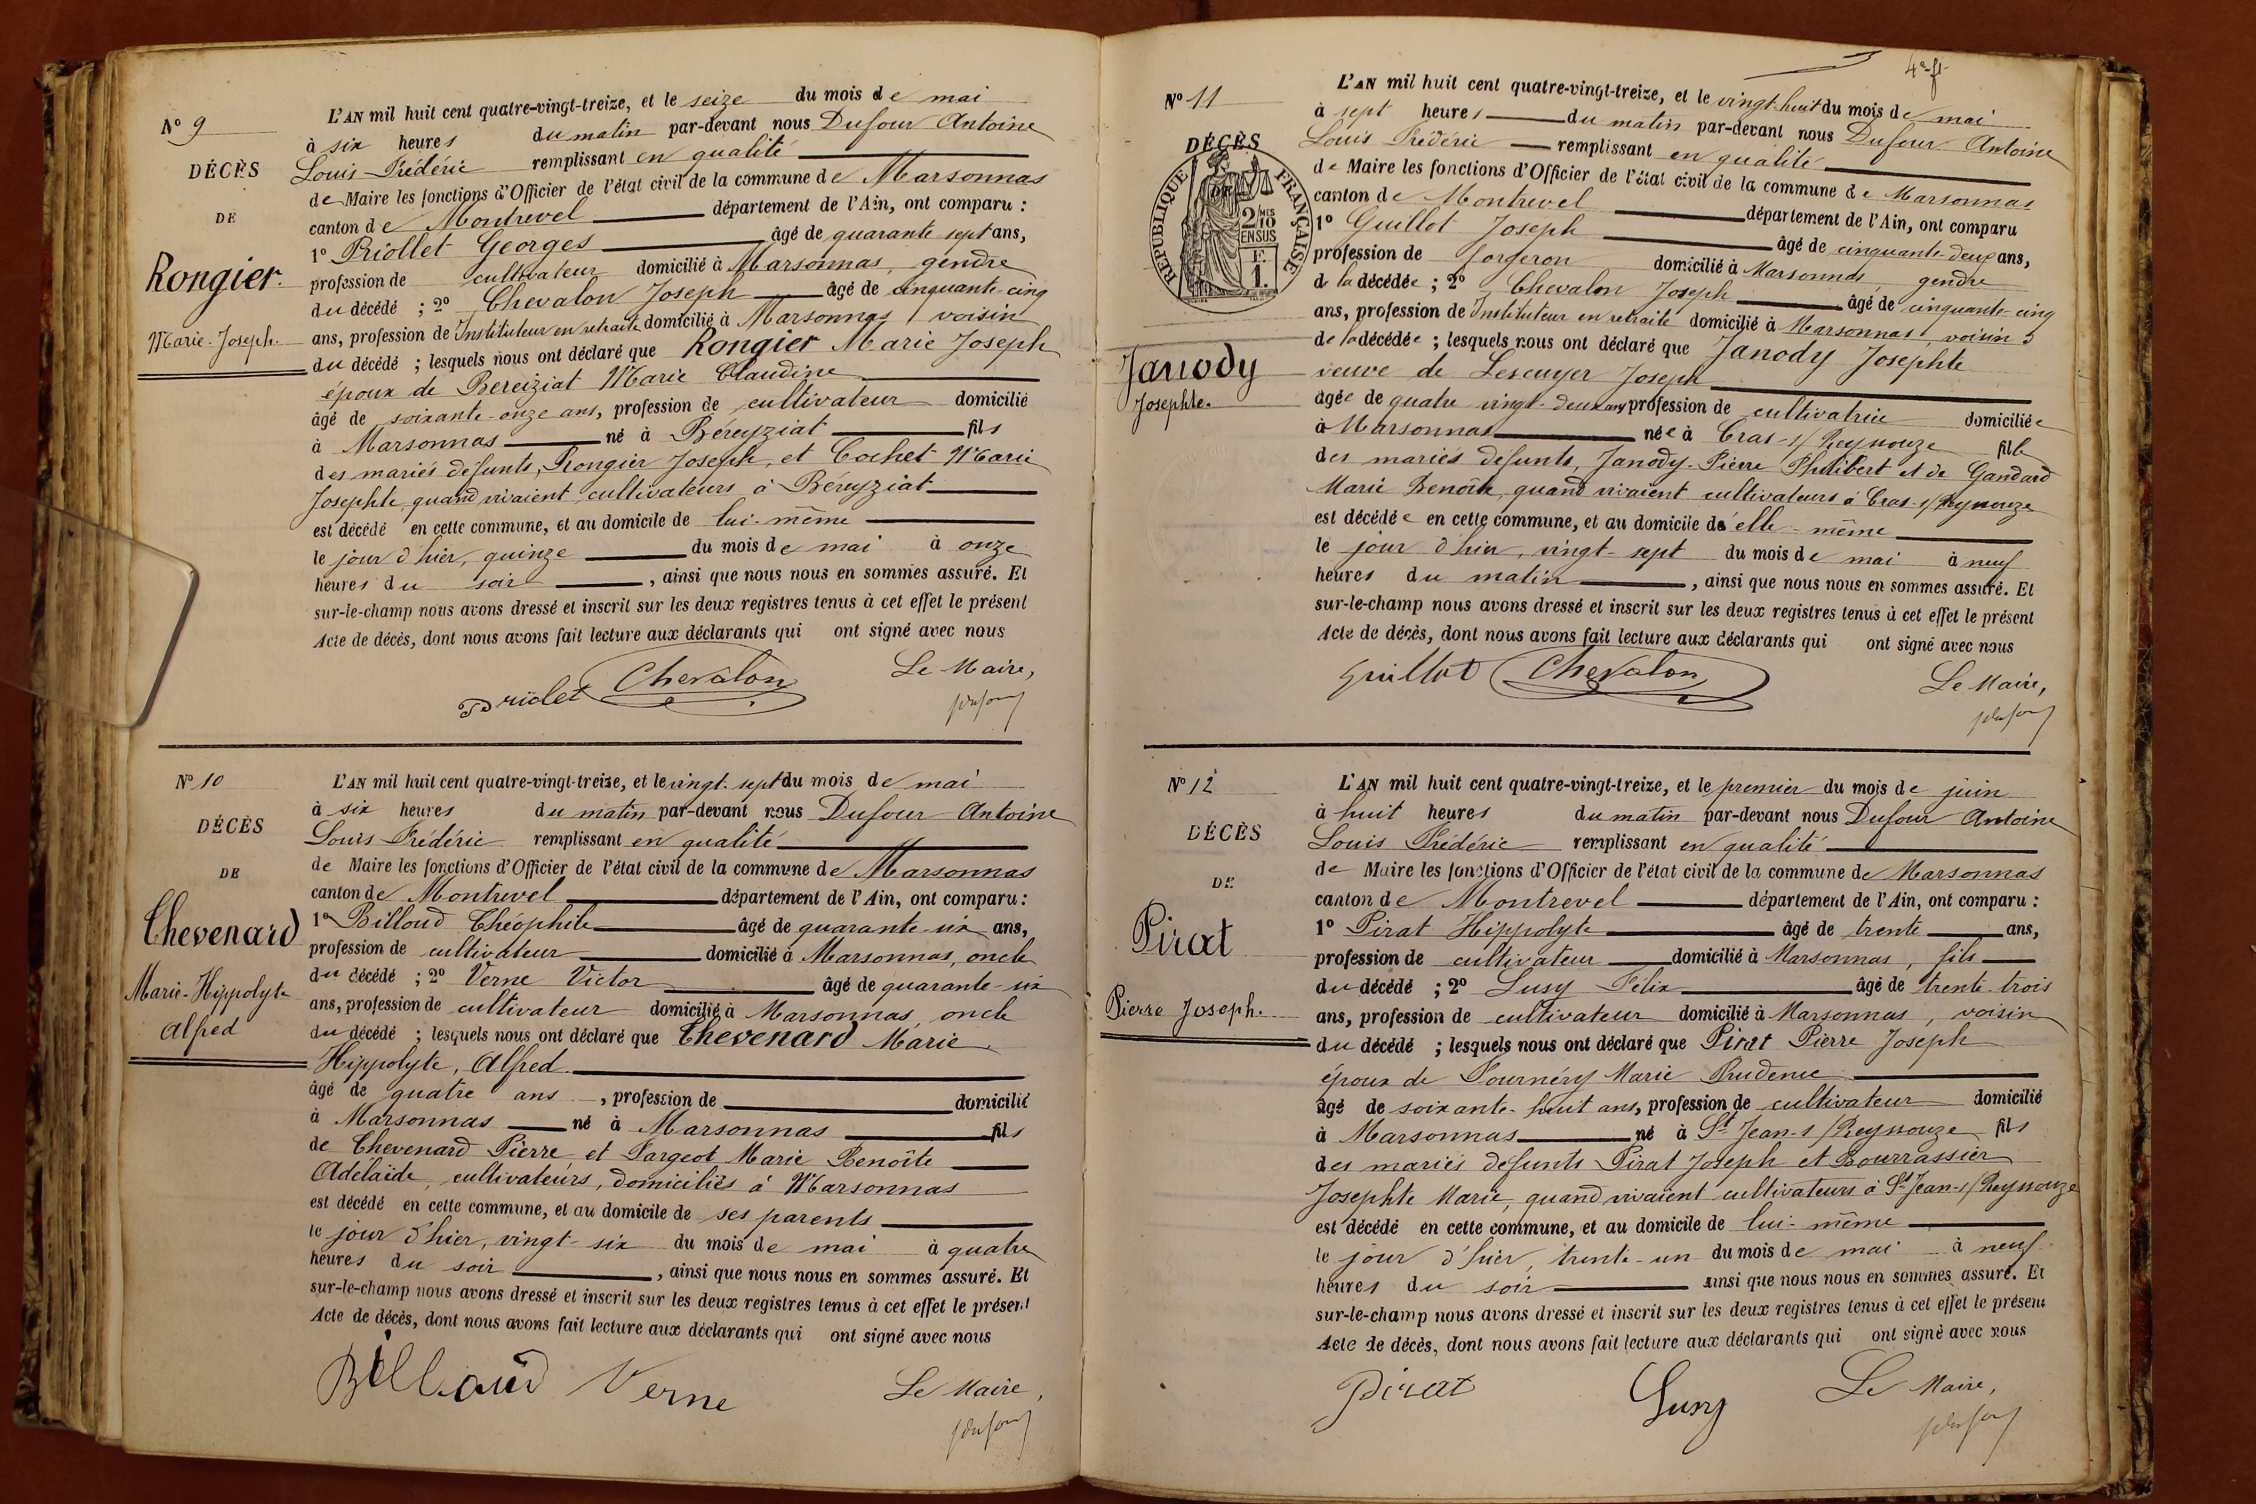 N° 9
DÉCÈS
DE
Rongier
Marie-Joseph.
L'AN mil huit cent quatre-vingt-treize, et le seize du mois de mai
à six heures du matin par-devant nous Dufour Antoine
Louis Frédéric remplissant en qualité
de Maire les fonctions d'Officier de l'état civil de la commune de Marsonnas
canton de Montrevel département de l'Ain, ont comparu :
1° Priollet Georges âgé de quarante sept ans,
profession de cultivateur domicilié à Marsonnas, gendre
du décédé ; 2° Chevalon Joseph âgé de cinquante-cinq
ans, profession de Instituteur en retraite domicilié à Marsonnas, voisin
du décédé ; lesquels nous ont déclaré que Rongier Marie Joseph
époux de Bereiziat Marie Claudine
âgé de soixante-onze ans, profession de cultivateur domicilié
à Marsonnas né à Béreyziat fils
des mariés défunts, Rongier Joseph, et Cochet Marie
Josephte, quand vivaient cultivateurs à Béreyziat
est décédé en cette commune, et au domicile de lui-même
le jour d'hier, quinze du mois de mai à onze
heures du soir, ainsi que nous nous en sommes assuré. Et
sur-le-champ nous avons dressé et inscrit sur les deux registres tenus à cet effet le présent
Acte de décès, dont nous avons fait lecture aux déclarants qui ont signé avec nous
Le Maire,
Priolet Chevalon
Dufour
N° 10
DÉCÈS
DE
Chevenard
Marie-Hippolyte
Alfred
L'AN mil huit cent quatre-vingt-treize, et le vingt-sept du mois de mai
à six heures du matin par-devant nous Dufour Antoine
Louis Frédéric remplissant en qualité
de Maire les fonctions d'Officier de l'état civil de la commune de Marsonnas
canton de Montrevel département de l'Ain, ont comparu :
1° Billoud Théophile âgé de quarante-six ans,
profession de cultivateur domicilié à Marsonnas, oncle
du décédé ; 2° Verne Victor âgé de quarante-six
ans, profession de cultivateur domicilié à Marsonnas, oncle
du décédé ; lesquels nous ont déclaré que Chevenard Marie
Hippolyte, Alfred
âgé de quatre ans, profession de domicilié
à Marsonnas né à Marsonnas fils
de Chevenard Pierre et Pargeot Marie Benoîte
Adélaïde, cultivateurs, domiciliés à Marsonnas
est décédé en cette commune, et au domicile de ses parents
le jour d'hier, vingt-six du mois de mai à quatre
heures du soir, ainsi que nous nous en sommes assuré. Et
sur-le-champ nous avons dressé et inscrit sur les deux registres tenus à cet effet le présent
Acte de décès, dont nous avons fait lecture aux déclarants qui ont signé avec nous
Billioud Verne Le Maire,
Dufour
4e ft
N° 11
DÉCÈS
DE
RÉPUBLIQUE FRANÇAISE
2/10 MES
EN SUS
F.
1.
Janody
Josephte.
L'AN mil huit cent quatre-vingt-treize, et le vingt-huit du mois de mai
à sept heures du matin par-devant nous Dufour Antoine
Louis Frédéric remplissant en qualité
de Maire les fonctions d'Officier de l'état civil de la commune de Marsonnas
canton de Montrevel département de l'Ain, ont comparu
1° Guillot Joseph âgé de cinquante-deux ans,
profession de forgeron domicilié à Marsonnas, gendre
de la décédée ; 2° Chevalon Joseph âgé de cinquante-cinq
ans, profession de Instituteur en retraite domicilié à Marsonnas, voisin
de la décédée ; lesquels nous ont déclaré que Janody Josephte
veuve de Lescuyer Joseph
âgée de quatre vingt-deux ans profession de cultivatrice domiciliée
à Marsonnas née à Cras-s/Reyssouze fille
des mariés défunts, Janody-Pierre Philibert et de Gandard
Marie Benoîte, quand vivaient cultivateurs à Cras-s/Reyssouze
est décédée en cette commune, et au domicile d'elle-même
le jour d'hier, vingt-sept du mois de mai à neuf
heures du matin, ainsi que nous nous en sommes assuré. Et
sur-le-champ nous avons dressé et inscrit sur les deux registres tenus à cet effet le présent
Acte de décès, dont nous avons fait lecture aux déclarants qui ont signé avec nous
Guillot Chevalon Le Maire,
Dufour
N° 12
DÉCÈS
DE
Pirat
Pierre Joseph.
L'AN mil huit cent quatre-vingt-treize, et le premier du mois de juin
à huit heures du matin par-devant nous Dufour Antoine
Louis Frédéric remplissant en qualité
de Maire les fonctions d'Officier de l'état civil de la commune de Marsonnas
canton de Montrevel département de l'Ain, ont comparu :
1° Pirat Hippolyte âgé de trente ans,
profession de cultivateur domicilié à Marsonnas, fils
du décédé ; 2° Susy Félix âgé de trente-trois
ans, profession de cultivateur domicilié à Marsonnas, voisin
du décédé ; lesquels nous ont déclaré que Pirat Pierre Joseph
époux de Fournéry Marie Prudence
âgé de soixante-huit ans, profession de cultivateur domicilié
à Marsonnas né à St Jean-s/Reyssouze fils
des mariés défunts Pirat Joseph et Bourrassier
Josephte Marie, quand vivaient cultivateurs à St Jean-s/Reyssouze
est décédé en cette commune, et au domicile de lui-même
le jour d'hier, trente-un du mois de mai à neuf
heures du soir ainsi que nous nous en sommes assuré. Et
sur-le-champ nous avons dressé et inscrit sur les deux registres tenus à cet effet le présent
Acte de décès, dont nous avons fait lecture aux déclarants qui ont signé avec nous
Pirat Susy Le Maire,
Dufour